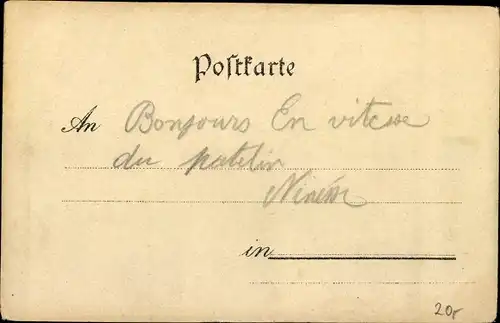 Postkarte
An Bonjours En vitesse
du patelin
in
20,-